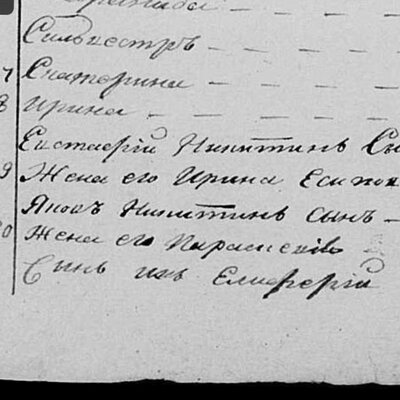 Сильвестръ
7 Екатерина
8 Ирина
Евстаѳій Никитинъ Сы
9 Жена его Ирина Есипов
Яковъ Никитинъ сынъ
Жена его Параскевія
Сынъ ихъ Елиферій